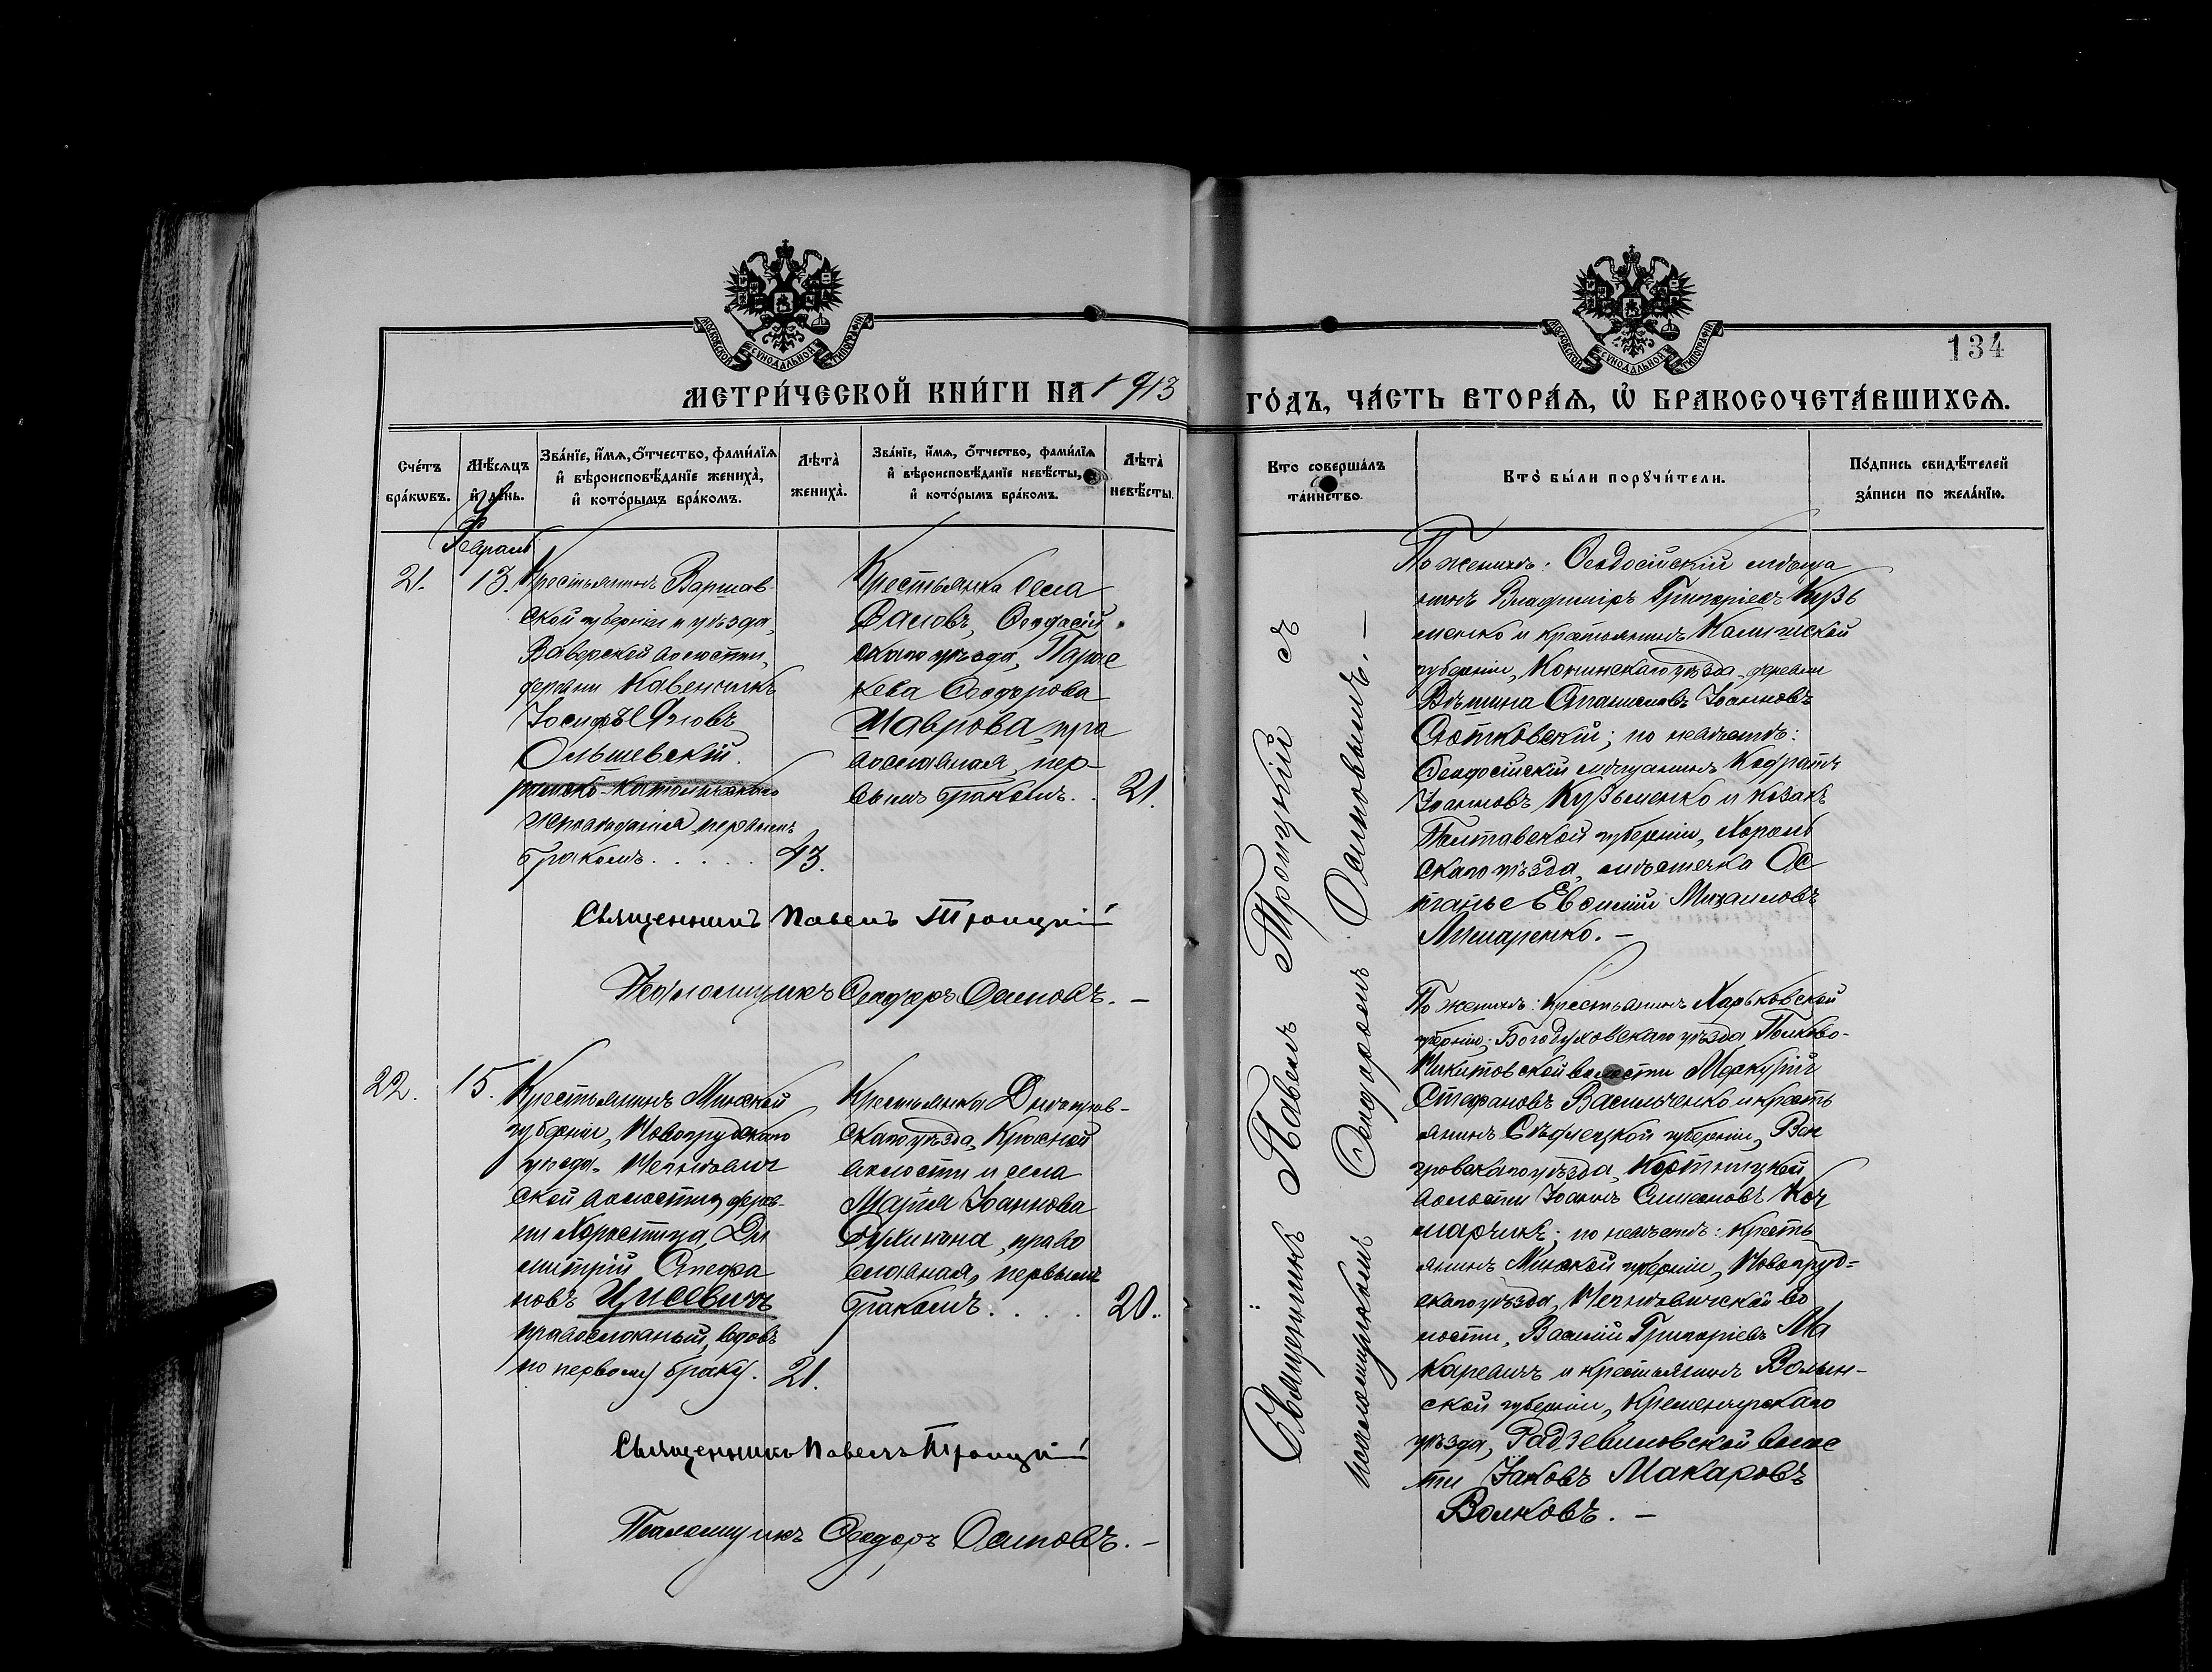 МОСКОВСКОЙ СѴНОДАЛЬНОЙ ТИПОГРАФІИ
МЕТРИ́ЧЕСКОЙ КНИ́ГИ НА 1913
Сче́тъ бра́кѡвъ.
Мѣ́сяцъ и҆ де́нь.
Зва́нїе, и҆́мѧ, ѻ҆́тчество, фами́лїѧ
и҆ вѣроисповѣ́данїе жениха̀,
и҆ кото́рымъ бра́комъ.
Лѣ́та̀ жениха̀.
Зва́нїе, и҆́мѧ, ѻ҆́тчество, фами́лїѧ
и҆ вѣроисповѣ́данїе невѣ́сты,
и҆ кото́рымъ бра́комъ.
Лѣ́та̀ невѣ́сты.
Февраль
21.
13.
Крестьянинъ Варшав-
ской губерніи и уѣзда,
Ваверской волости,
деревни Кавенчинъ
Іосифъ Яновъ
Ольшевскій.
римско-католическаго
исповѣданія, первымъ
бракомъ. . . . .
43.
Крестьянка села
Ѳеодосій-
скаго уѣзда, Парас
кева Ѳеодорова
Маврова, пра
вославная, пер-
вымъ бракомъ. .
21.
Священникъ Павелъ Троицкій
Псаломщикъ Ѳеодоръ Осиповъ. —
22.
15.
Крестьянинъ Минской
губерніи, Новогрудскаго
уѣзда,
ской волости, дерев-
ни Хоростица, Ди
митрій Стефа
новъ
православный, вдовъ
по первому браку.
21.
Крестьянка Днѣпров-
скаго уѣзда, Красной
волости и села
Марія Іоаннова
право
славная, первымъ
бракомъ. . . .
20.
Священникъ Павелъ Троицкій
Псаломщикъ Ѳеодоръ Осиповъ. —
МОСКОВСКОЙ СѴНОДАЛЬНОЙ ТИПОГРАФІИ
134
ГО́ДЪ, ЧА́СТЬ ВТОРА́Ѧ, Ѡ҆ БРАКОСОЧЕТА́ВШИХСѦ.
Кто соверша́лъ та́инство.
Кто̀ бы́ли порꙋчи́тели.
По́дпись свидѣ́телей
за́писи по жела́нїю.
Священникъ Павелъ Троицкій съ
псаломщикомъ Ѳеодоромъ Осиповымъ. —
По женихѣ: Ѳеодосійскій мѣща
нинъ Владиміръ Григоріевъ Кузь
менко и крестьянинъ Калишской
губерніи, Конинскаго уѣзда, деревни
Станиславъ Іоанновъ
по невѣстѣ:
Ѳеодосійскій мѣщанинъ Кодратъ
Іоанновъ Кузьменко и козакъ
Полтавской губерніи, Хороль
скаго уѣзда, мѣстечка Ос
тапье Евѳимій Михаиловъ
По женихѣ: крестьянинъ Харьковской
губерніи, Богодуховскаго уѣзда, Полково-
Никитовской волости Меркурій
Стефановъ Васильченко и кресть
янинъ Сѣдлецкой губерніи, Вен
гровскаго уѣзда,
волости Іоаннъ Симеоновъ Коч
марчикъ; по невѣстѣ: кресть
янинъ Минской губерніи, Новогруд-
скаго уѣзда, во
лости, Василій Григоріевъ Ма
каревичъ и крестьянинъ Волын-
ской губерніи, Кременецкаго
уѣзда, Радзивиловской волос
ти Іаковъ Макаровъ
Волковъ. —